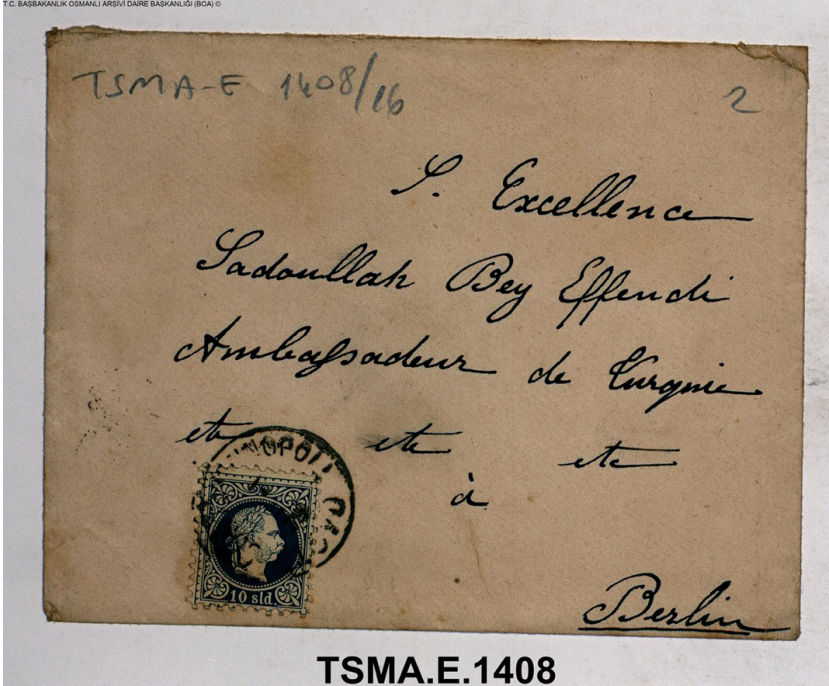 T.C. BAŞBAKANLIK OSMANLI ARŞİVİ DAİRE BAŞKANLIĞI (BOA) ©
TSMA-E 1408/16
2
S. Excellence
Sadoullah Bey Effendi
Ambassadeur de Turquie
etc etc etc
à
Berlin
10 sld.
TSMA.E.1408